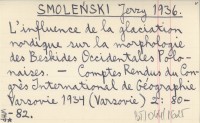 SMOLEŃSKI Jerzy 1936.
L'influence de la glaciation
nordique sur la morphologie
des Beskides Occidentales Polo-
naises. — Comptes Rendus du Con-
grès International de Géographie
Varsovie 1934 (Varsovie) 2: 80-
-82.